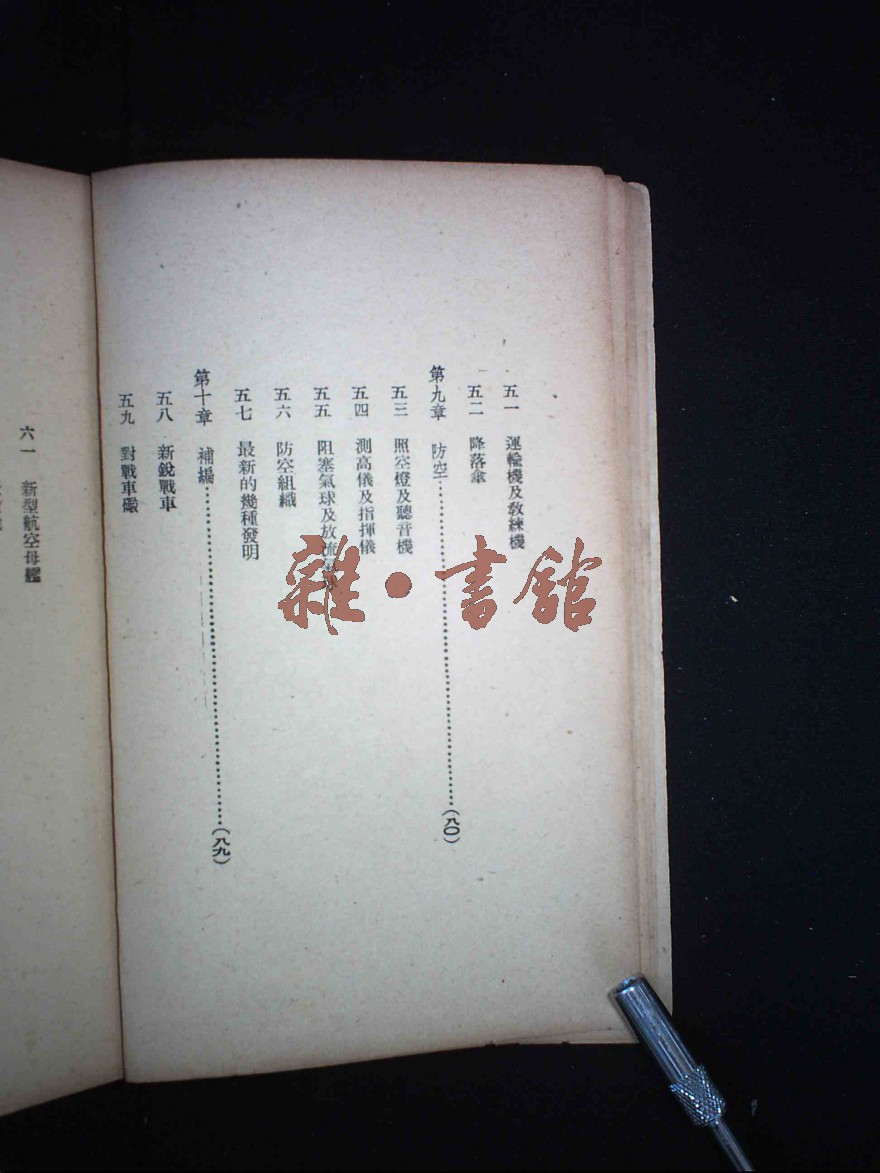 五一 運輸機及敎練機
五二 降落傘
第九章 防空………………(八〇)
五三 照空燈及聽音機
五四 測高儀及指揮儀
五五 阻塞氣球及放流氣球
五六 防空組織
五七 最新的幾種發明
第十章 補編………………(八九)
五八 新銳戰車
五九 對戰車礮
六一 新型航空母艦
雜·書館